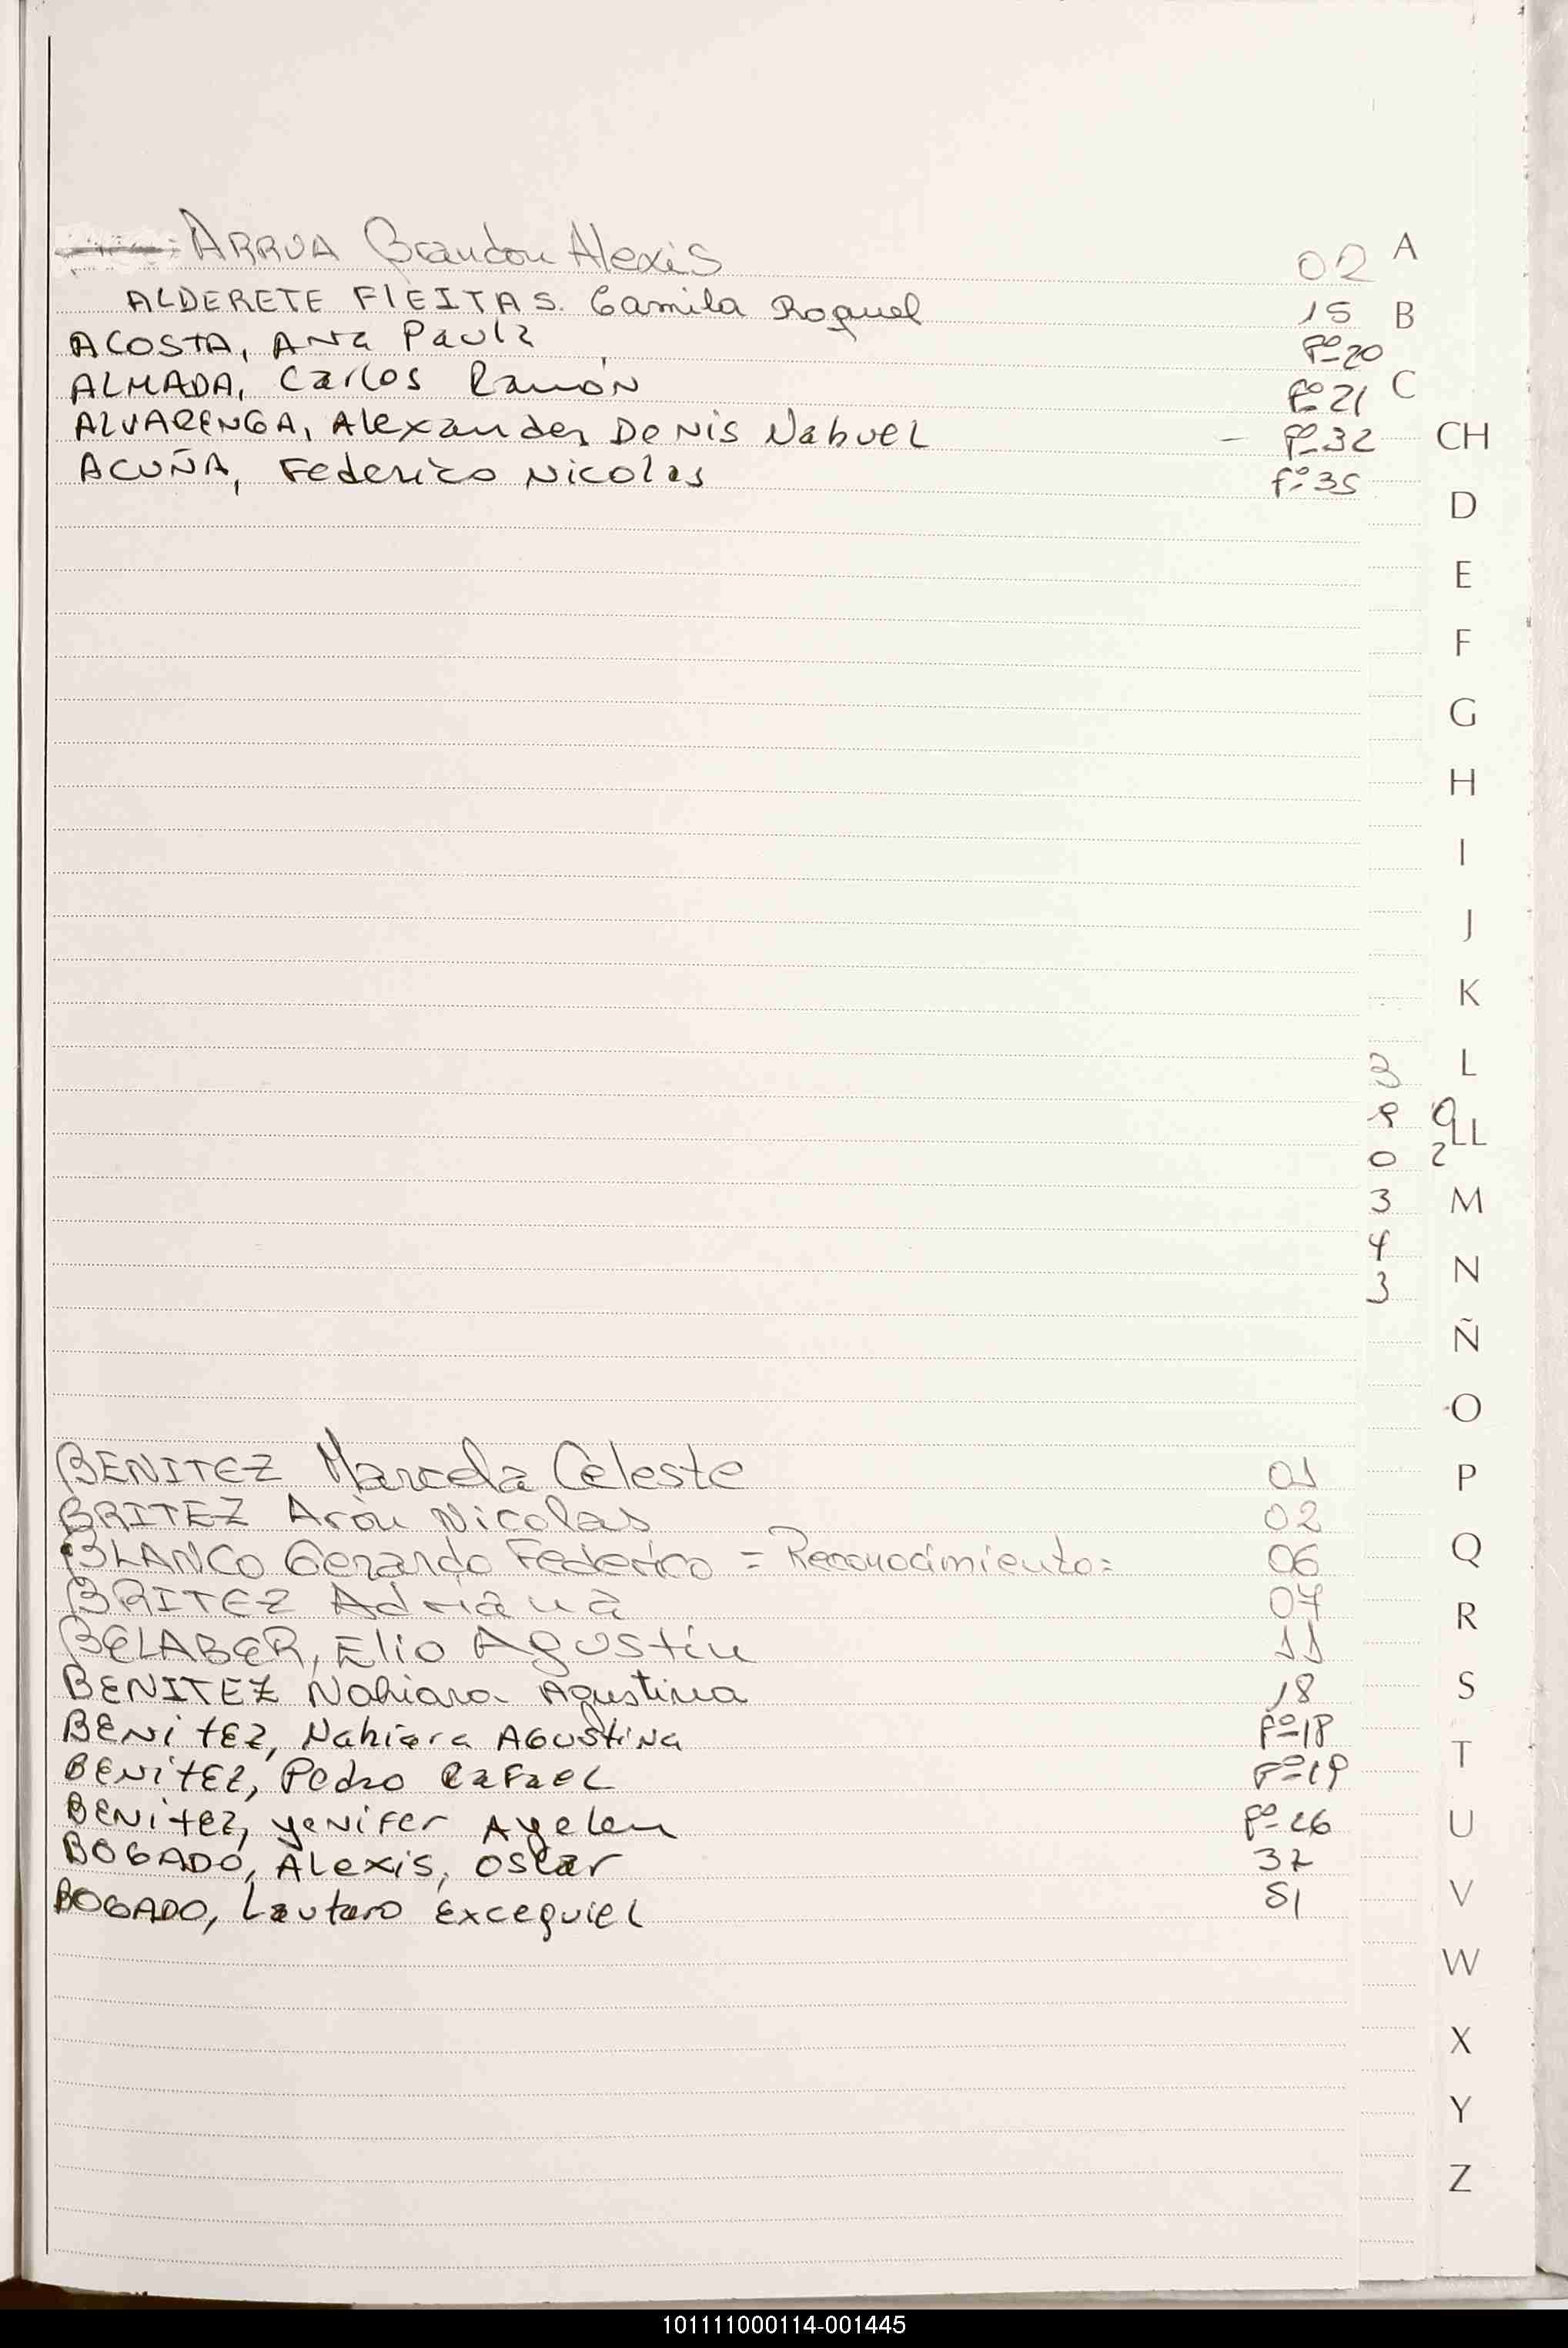 ARRUA Brandon Alexis 02
ALDERETE FLEITAS. Camila Raquel 15
ACOSTA, Ana Paula Fº 20
ALMADA, Carlos Ramón Fº 21
ALVARENGA, Alexander Denis Nahuel - Fº 32
ACUÑA, Federico Nicolas Fº 35
BENITEZ Marcela Celeste 01
BRITEZ Arón Nicolas 02
BLANCO Gerardo Federico = Reconocimiento= 06
BRITEZ Adriana 07
BELABER, Elio Agustín 11
BENITEZ Nahiara Agustina 18
BENITEZ, Nahiara Agustina Fº 18
BENITEZ, Pedro Rafael Fº 19
BENITEZ, Yenifer Ayelen Fº 26
BOGADO, Alexis, Oscar 37
BOGADO, Lautaro Excequiel 51
A
B
C
CH
D
E
F
G
H
I
J
K
3 L
9 0 LL
0 2
3 M
4
N
3
Ñ
O
P
Q
R
S
T
U
V
W
X
Y
Z
101111000114-001445